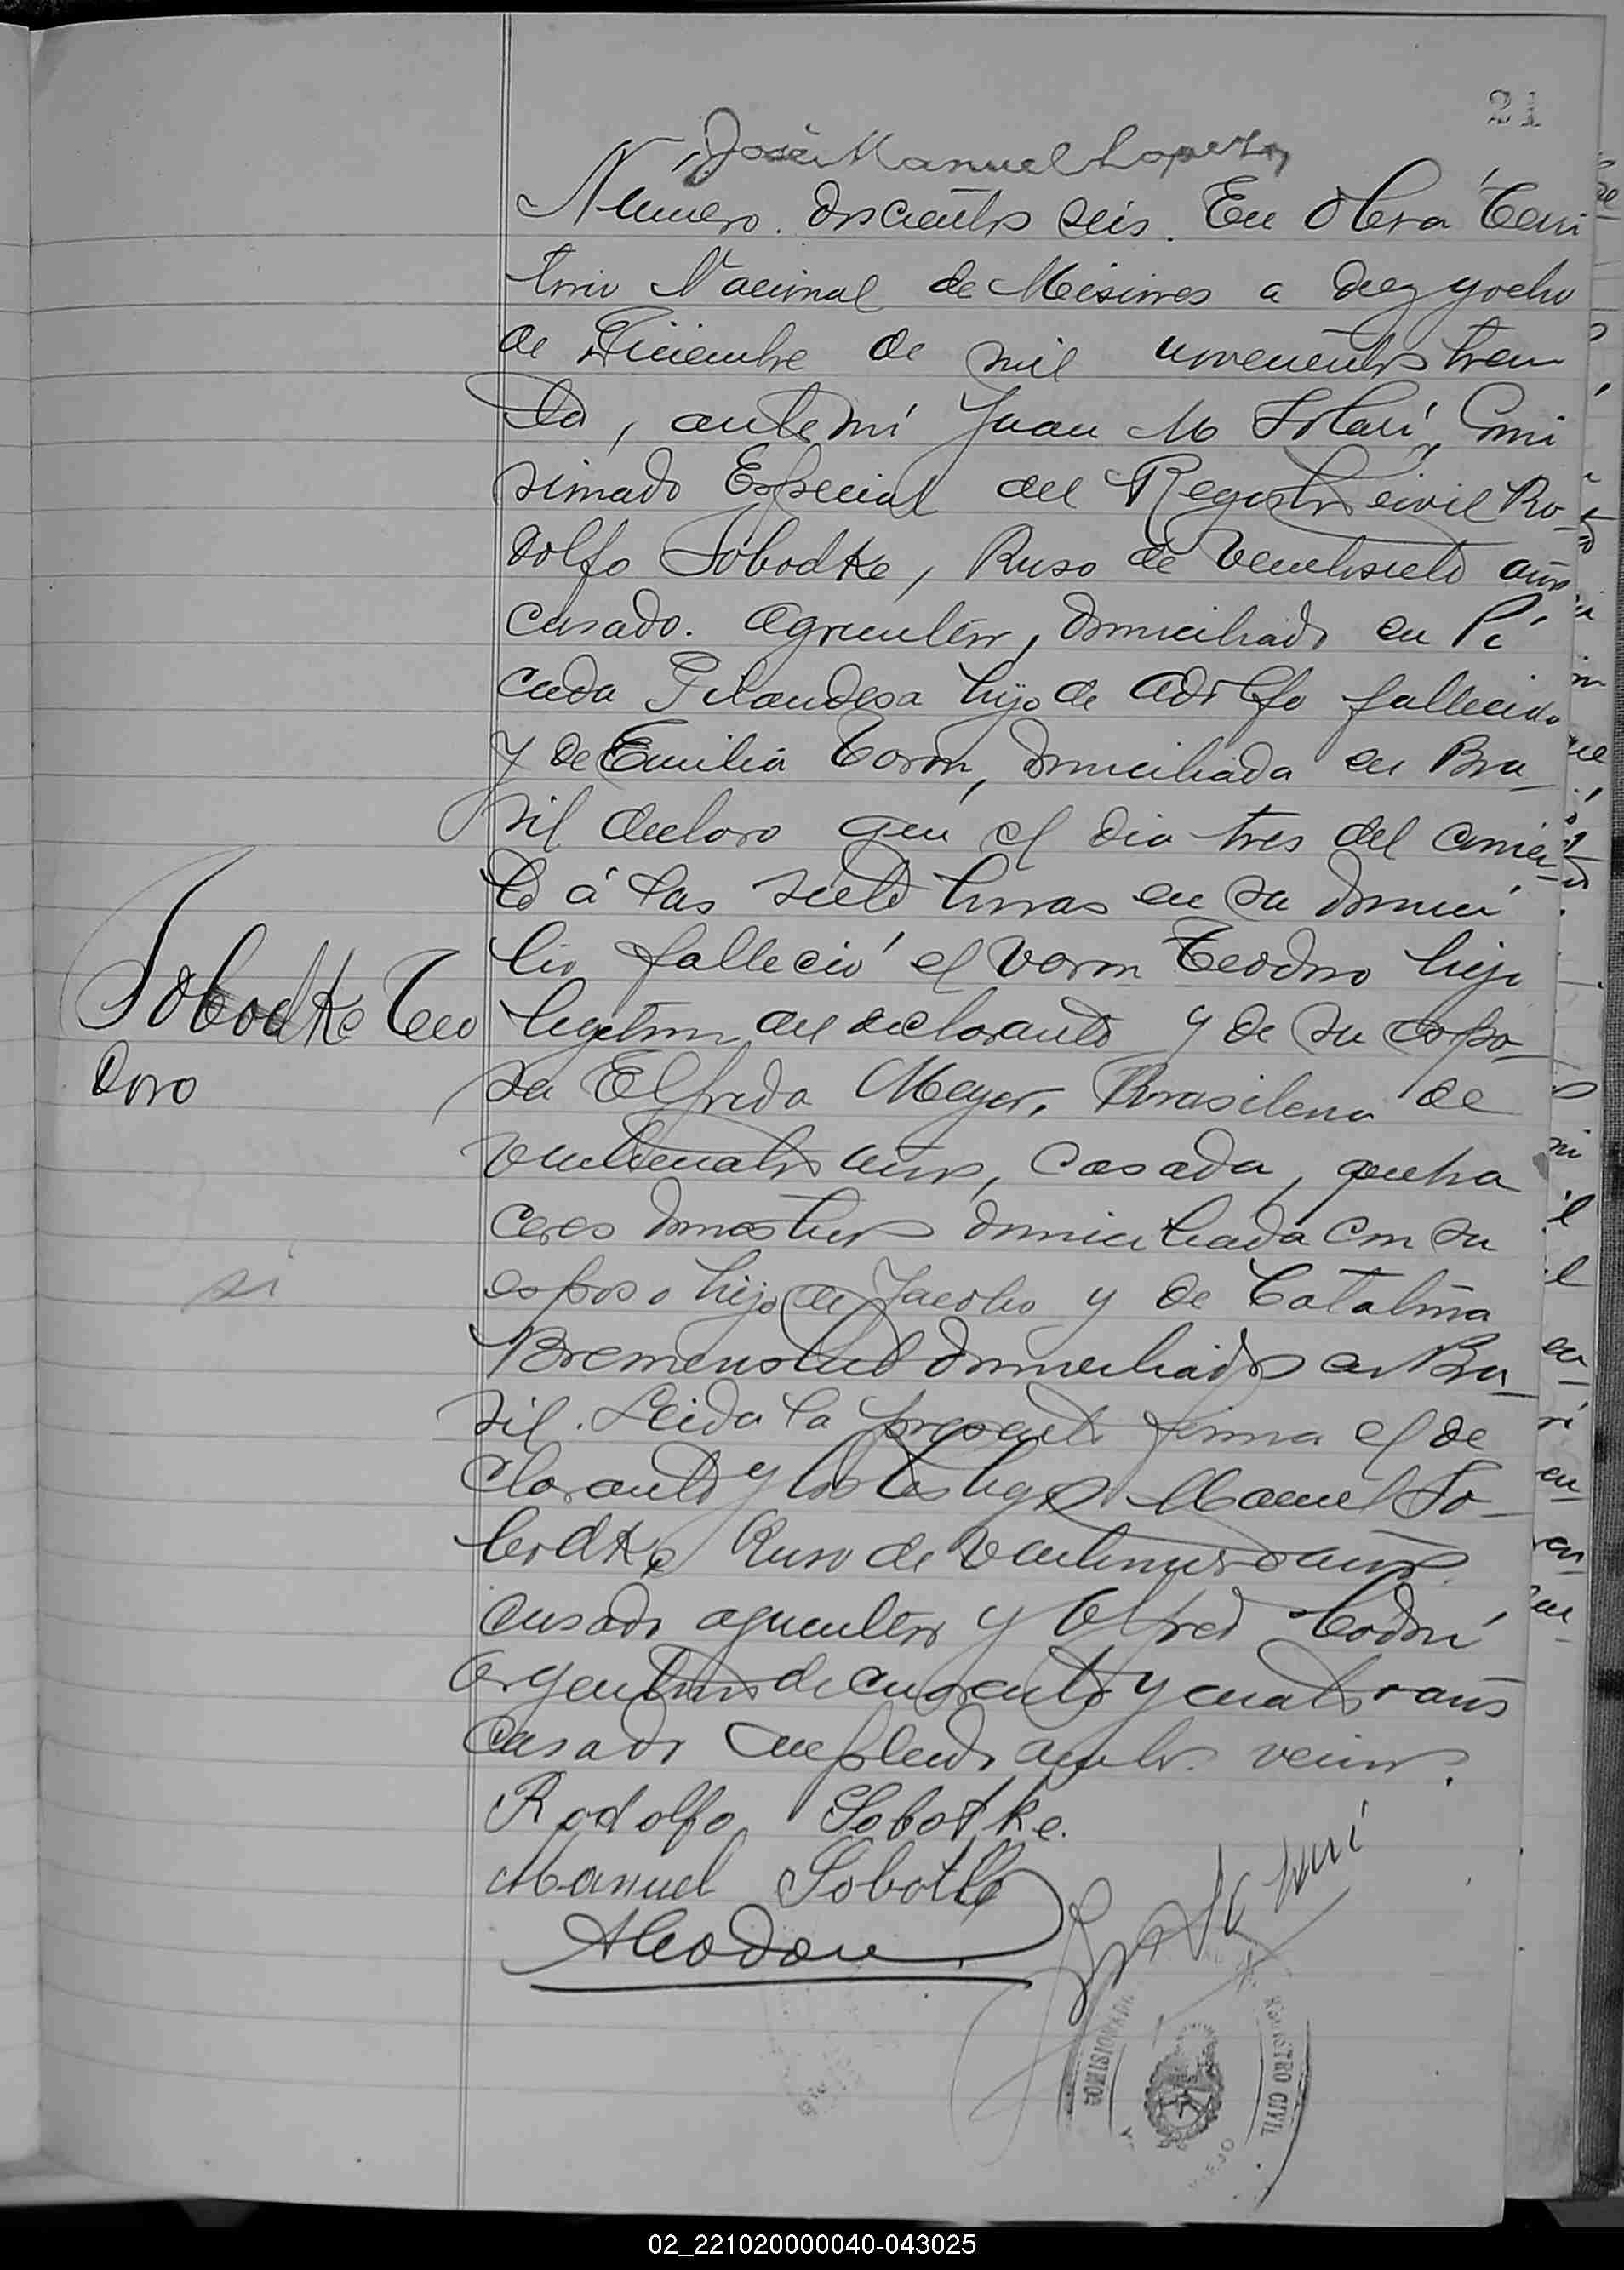 21
José Manuel Lopez
Número doscientos seis. En Obera Terri
torio Nacional de Misiones a diez y ocho
de Diciembre de mil novecientos trein
ta, ante mí Juan M Solari, Comi
sionado Especial del Registro civil Ro-
dolfo Sobodke, Ruso de veintisiete años
casado. agricultor, domiciliado en Pi
cada Filandesa hijo de Adolfo fallecido
y de Emilia, domiciliada en Bra-
sil declaro que el dia tres del corrien-
te á las siete horas en su domici
lio falleció el varon Teodoro hijo
legitimo del declarante y de su espo-
sa Elfreda Meyer, Brasilena de
veinticuatro años, casada, queha
ceres domesticos domiciliada con su
esposo hija de Jacobo y de Catalina
domiciliados en Bra-
sil. Leida la presente firma el de
clarante y los testigos Manuel So-
bodke Ruso de veintinueve años
casado agricultor y Alfredo Codoni
argentino de cuarenta y cuatro años
casado empleado ambos vecinos.
Sobodke Teo
doro
si
Rodolfo Sobotke.
Manuel Sobotke
REGISTRO CIVIL
COMISIONADO
02_221020000040-043025